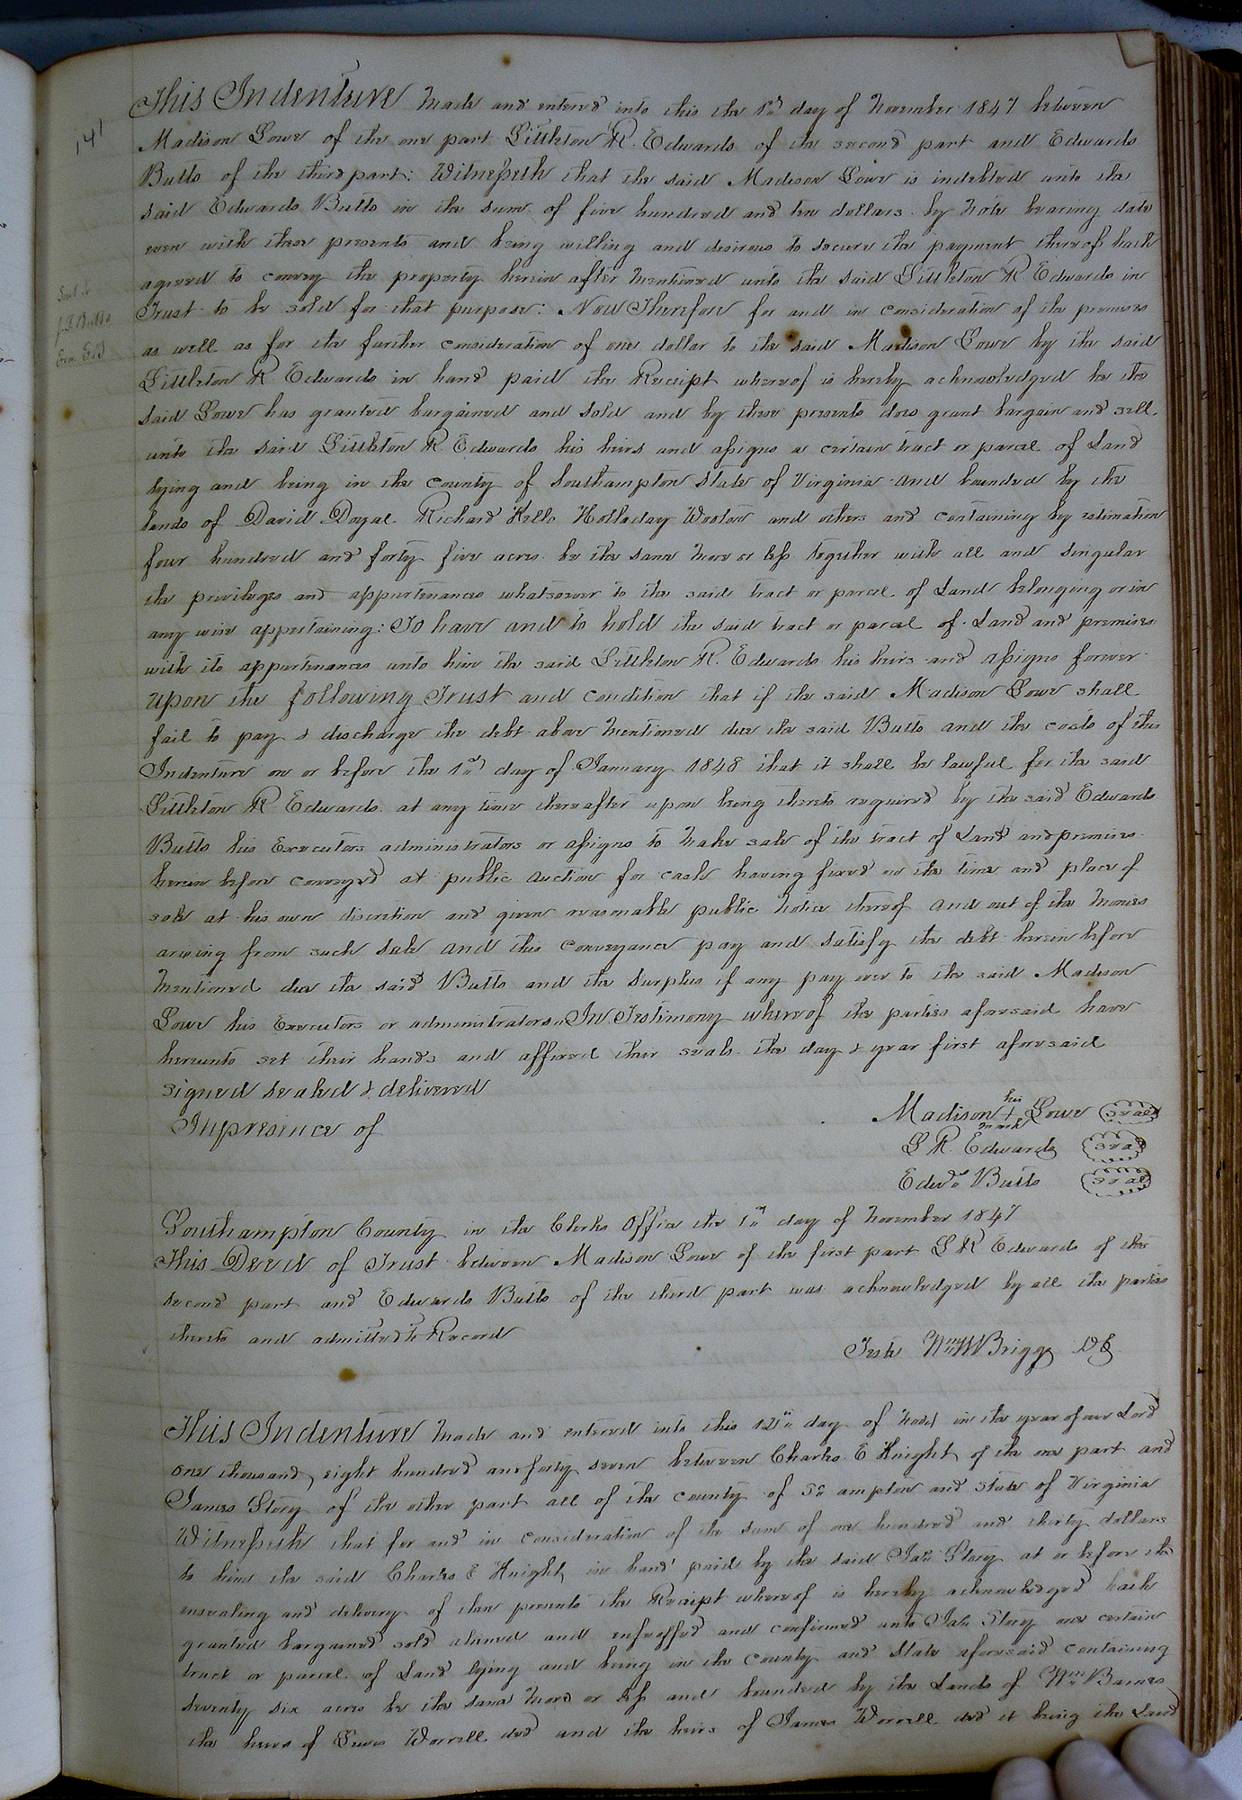 141
This Indenture Made and entered into this the 1st day of November 1847 between
Madison Lowe of the one part Littleton R. Edwards of the second part and Edwards
Butts of the third part: Witnesseth that the said Madison Lowe is indebted unto the
said Edwards Butts in the sum of five hundred and ten dollars by Note bearing date
even with these presents and being willing and desirous to secure the payment thereof hath
agreed to convey the property herein after Mentioned unto the said Littleton R Edwards in
Trust to be sold for that purpose: Now Therefore for and in consideration of the premises
as well as for the further consideration of one dollar to the said Madison Lowe by the said
Littleton R Edwards in hand paid the Receipt whereof is hereby acknowledged he the
said Lowe has granted bargained and sold and by these presents does grant bargain and sell
unto the said Littleton R Edwards his heirs and assigns a certain tract or parcel of Land
lying and being in the county of Southampton State of Virginia and bounded by the
lands of David Doyal Richard Kello Holladay Weston and others and containing by estimation
four hundred and forty five acres be the same More or less together with all and singular
the privileges and appurtenances whatsoever to the said tract or parcel of Land belonging or in
any wise appertaining: To have and to hold the said tract or parcel of Land and premises
with its appurtenances unto him the said Littleton R. Edwards his heirs and assigns forever
upon the following Trust and condition that if the said Madison Lowe shall
fail to pay & discharge the debt above Mentioned due the said Butts and the costs of this
Indenture on or before the 1st day of January 1848 that it shall be lawful for the said
Littleton R Edwards at any time thereafter upon being thereto required by the said Edwards
Butts his Executors administrators or assigns to Make sale of the tract of Land and premises
herein before conveyed at public Auction for cash having fixed on the time and place of
sale at his own discretion and given reasonable public Notice thereof and out of the Monies
arising from such sale and this conveyance pay and satisfy the debt herein before
Mentioned due the said Butts and the surplus if any pay over to the said Madison
Lowe his Executors or administrators. In Testimony whereof the parties aforesaid have
hereunto set their hands and affixed their seals the day & year first aforesaid
signed sealed & delivered
In presence of
Madison his + mark Lowe Seal
L R. Edwards Seal
Edwds Butts Seal
Southampton County in the Clerks Office the 1st day of November 1847
This Deed of Trust between Madison Lowe of the first part L R Edwards of the
second part and Edwards Butts of the third part was acknowledged by all the parties
thereto and admitted to Record
Teste Wm W Briggs DC
This Indenture Made and entered into this 12th day of Novr in the year of our Lord
one thousand, eight hundred and forty seven between Charles E Knight of the one part and
James Story of the other part all of the county of So ampton and state of Virginia
Witnesseth that for and in consideration of the sum of one hundred and thirty dollars
to him the said Charles E Knight in hand paid by the said Jas Story at or before the
ensealing and delivery of these presents the Receipt whereof is hereby acknowledged hath
granted bargained sold aliened and enfeoffed and confirmed unto Jas Story one certain
tract or parcel of Land lying and being in the County and State aforesaid containing
seventy six acres be the same More or less and bounded by the Lands of Wm Barnes
the heirs of Lewis Worrell decd and the heirs of James Worrell decd it being the Land